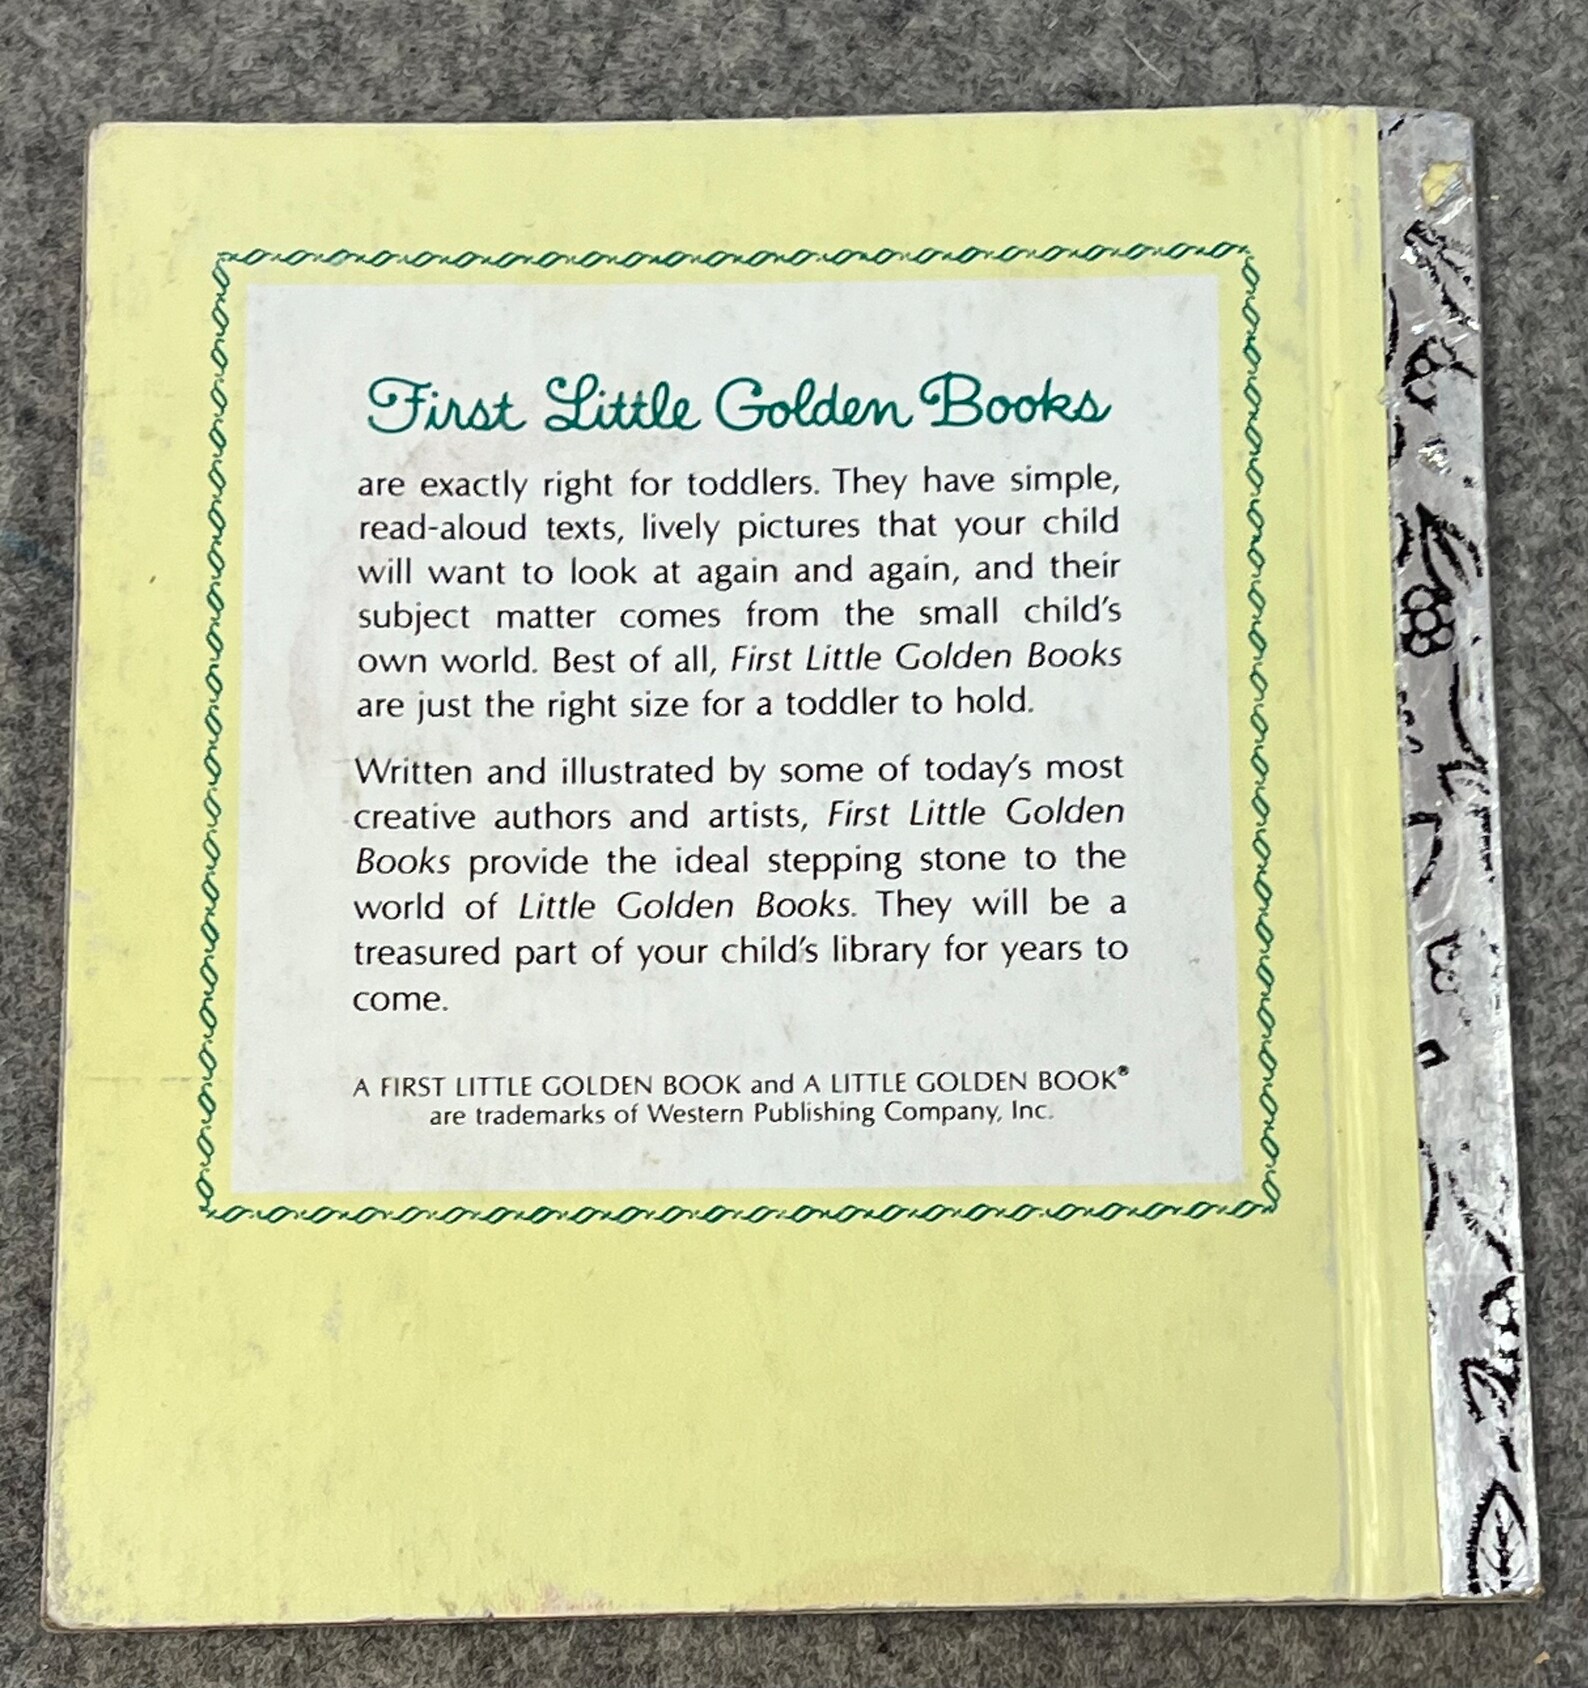 First Little Golden Books
are exactly right for toddlers. They have simple,
read-aloud texts, lively pictures that your child
will want to look at again and again, and their
subject matter comes from the small child's
own world. Best of all, First Little Golden Books
are just the right size for a toddler to hold.
Written and illustrated by some of today's most
creative authors and artists, First Little Golden
Books provide the ideal stepping stone to the
world of Little Golden Books. They will be a
treasured part of your child's library for years to
come.
A FIRST LITTLE GOLDEN BOOK and A LITTLE GOLDEN BOOK®
are trademarks of Western Publishing Company, Inc.